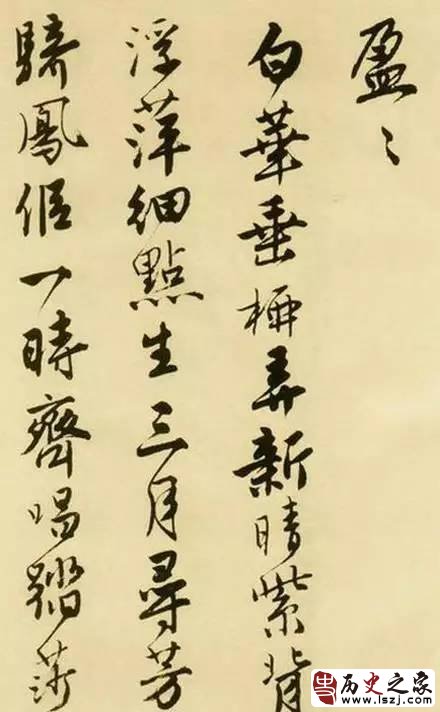 盈〻
白華垂桺弄新晴紫背
浮萍細點生三月尋芳
騎鳳侶一時齊唱踏莎
历史之家
www.lszj.com